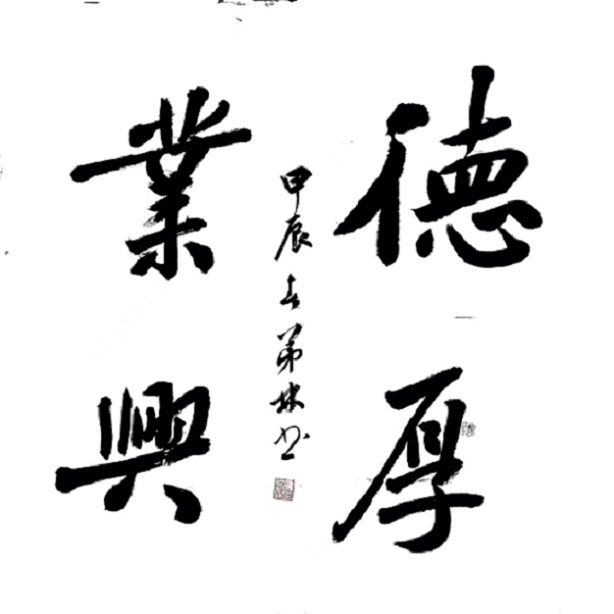 德厚
業興
甲辰春
林书